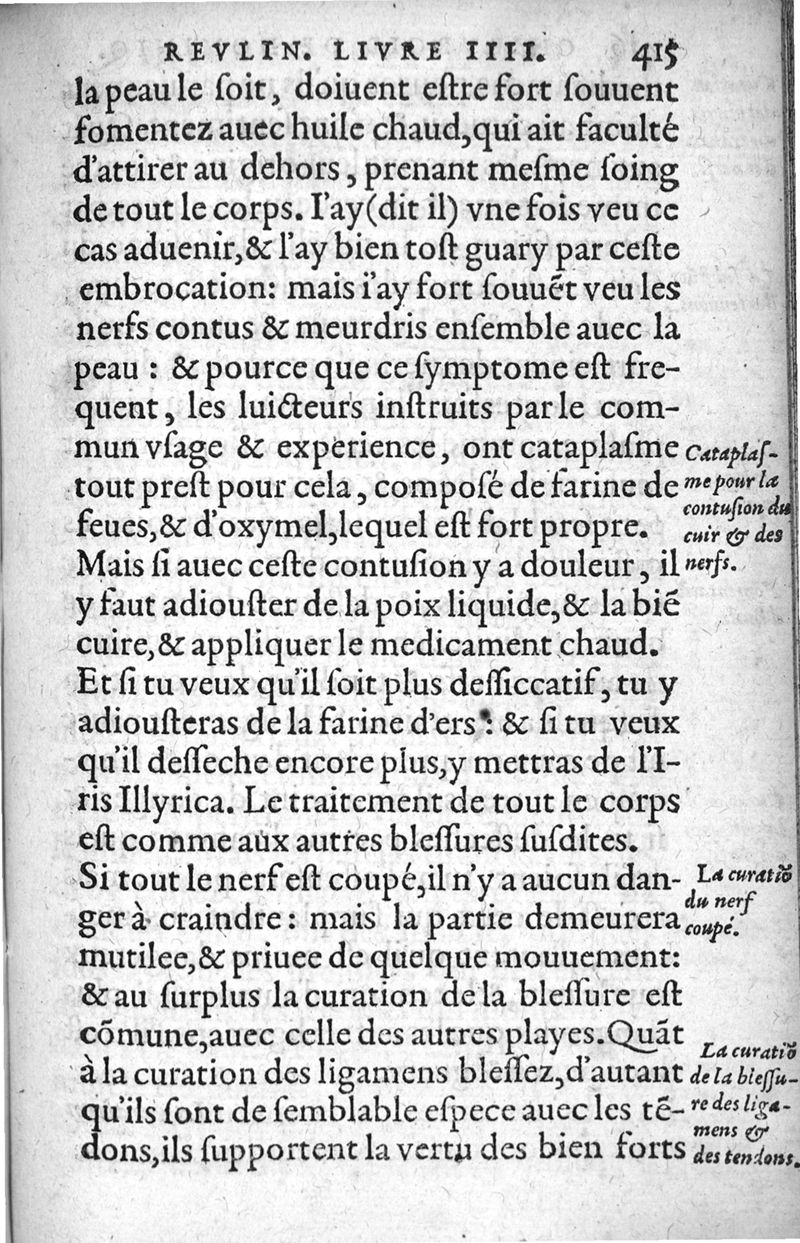 REVLIN. LIVRE IIII. 415
la peau le ſoit, doiuent eſtre fort ſouuent
fomentez auec huile chaud,qui ait faculté
d'attirer au dehors, prenant meſme ſoing
de tout le corps. I'ay(dit il) vne fois veu ce
cas aduenir,& l'ay bien toſt guary par ceſte
embrocation: mais i'ay fort ſouuẽt veu les
nerfs contus & meurdris enſemble auec la
peau : & pource que ce ſymptome eſt fre-
quent, les luicteurs inſtruits par le com-
mun vſage & experience, ont cataplaſme
tout preſt pour cela, compoſé de farine de
feues,& d'oxymel,lequel eſt fort propre.
Mais ſi auec ceſte contuſion y a douleur, il
y faut adiouſter de la poix liquide,& la biẽ
cuire,& appliquer le medicament chaud.
Et ſi tu veux qu'il ſoit plus deſſiccatif, tu y
adiouſteras de la farine d'ers : & ſi tu veux
qu'il deſſeche encore plus,y mettras de l'I-
ris Illyrica. Le traitement de tout le corps
eſt comme aux autres bleſſures ſuſdites.
Si tout le nerf eſt coupé,il n'y a aucun dan-
ger à craindre: mais la partie demeurera
mutilee,& priuee de quelque mouuement:
& au ſurplus la curation de la bleſſure eſt
cõmune,auec celle des autres playes.Quãt
à la curation des ligamens bleſſez,d'autant
qu'ils ſont de ſemblable eſpece auec les tẽ-
dons,ils ſupportent la vertu des bien forts
Cataplaſ-
me pour la
contuſion du
cuir & des
nerfs.
La curatiõ
du nerf
coupé.
La curatiõ
de la bleſſu-
re des liga-
mens &
des tendons.